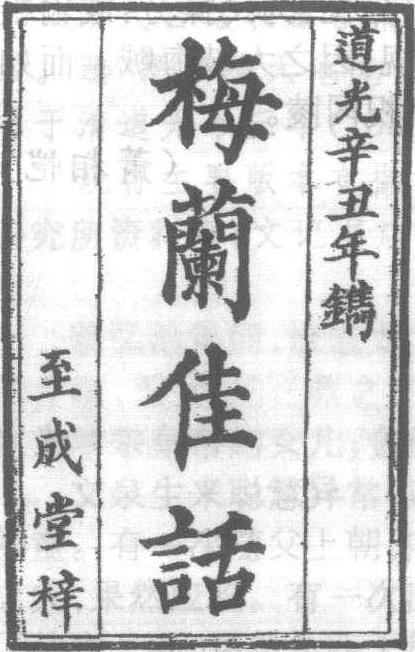 道光辛丑年鐫
梅蘭佳話
至成堂梓